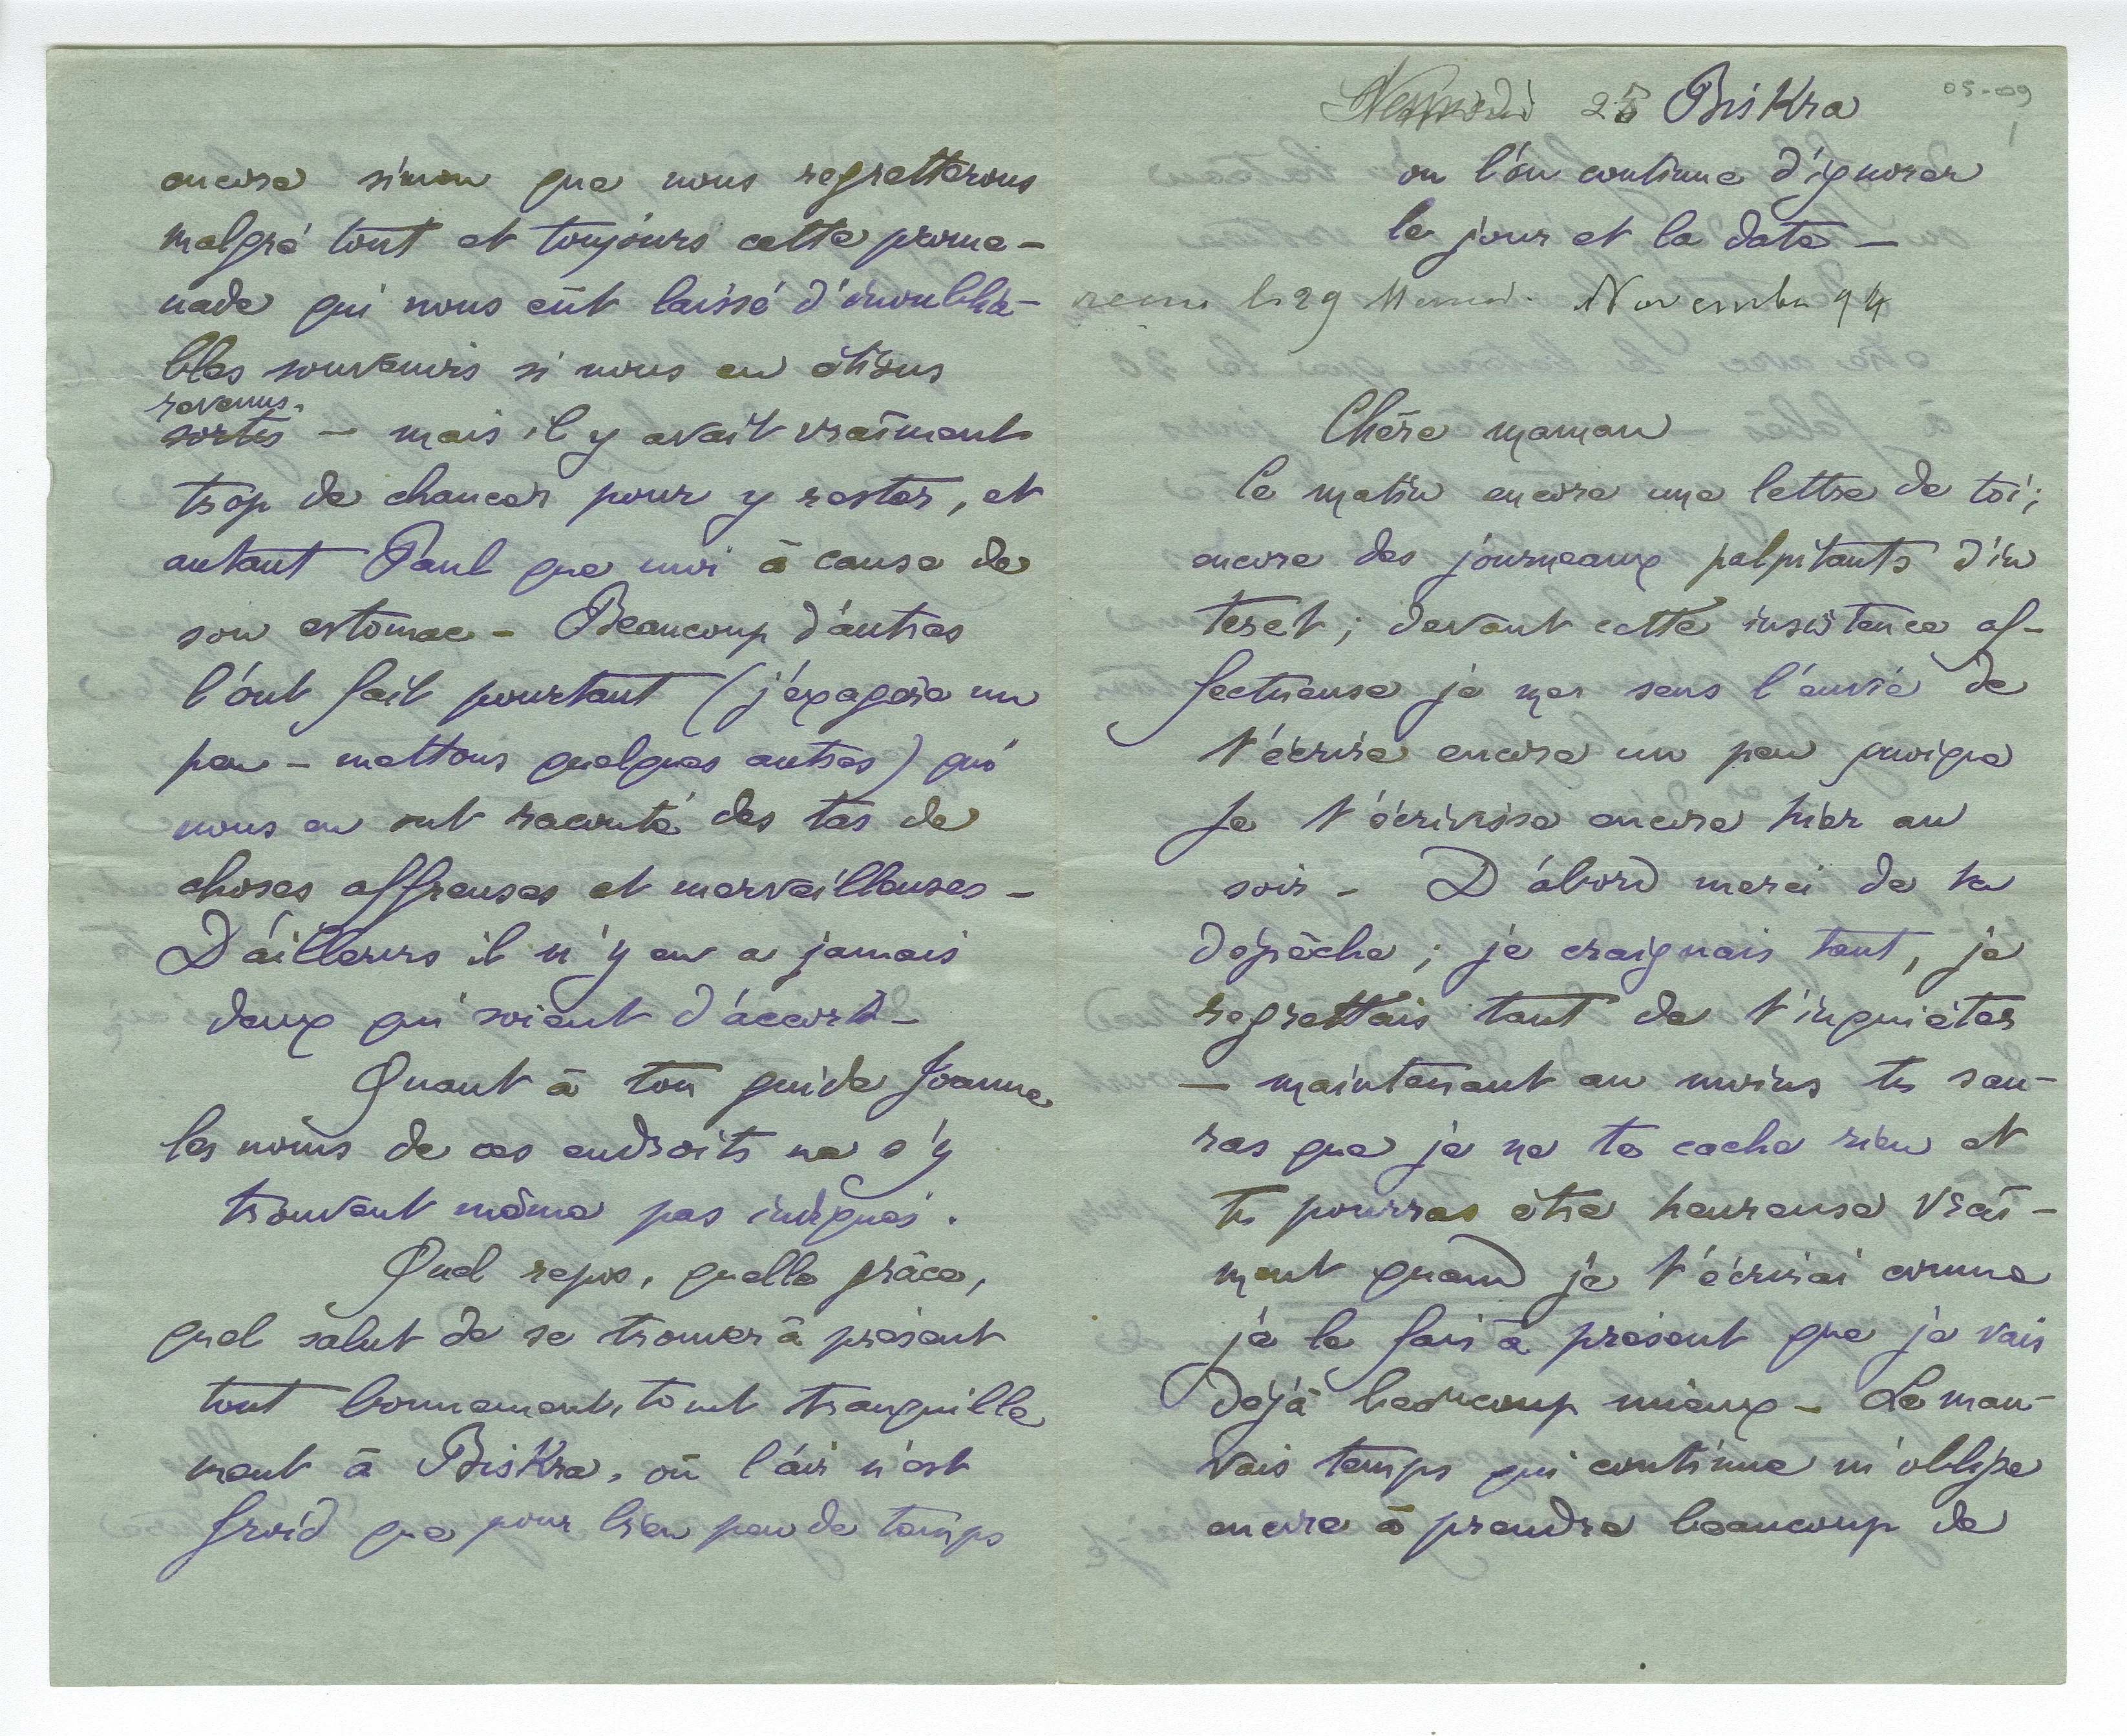 25 Biskra
05-09
1
ou l'on continue d'ignorer
le jour et la date –
le 29 Novembre 94
Chère maman
Ce matin encore une lettre de toi;
encore des journeaux palpitants d'in
teret; devant cette insistence af-
fectueuse je me sens l'envie de
t'écrire encore un peu quoique
je t'écrivisse encore hier au
soir – D'abord merci de ta
dépèche; je craignais tant, je
regrettais tant de t'inquiéter
– maintenant au moins tu sau-
ras que je ne te cache rien et
tu pourras être heureuse vrai-
ment quand je t'écrirai comme
je le fais à présent que je vais
déjà beaucoup mieux – Le mau-
vais temps qui continue m'oblige
encore à prendre beaucoup de
encore sinon que nous regretterons
malgré tout et toujours cette prome-
nade qui nous eût laissé d'inoublia-
bles souvenirs si nous en étions
revenus.
sortis – mais il y avait vraiment
trop de chances pour y rester, et
autant Paul que moi à cause de
son estomac – Beaucoup d'autres
l'ont fait pourtant (j'exagère un
peu – mettons quelques autres) qui
nous en ont raconté des tas de
choses affreuses et merveilleuses –
D'ailleurs il n'y en a jamais
deux qui soient d'accord –
Quant à ton guide Joanne
les noms de ces endroits ne s'y
trouvent même pas indiqués.
Quel repos, quelle grâce,
quel salut de se trouver à présent
tout bonnement, tout tranquille
ment à Biskra, où l'air n'est
froid que pour bien peu de temps